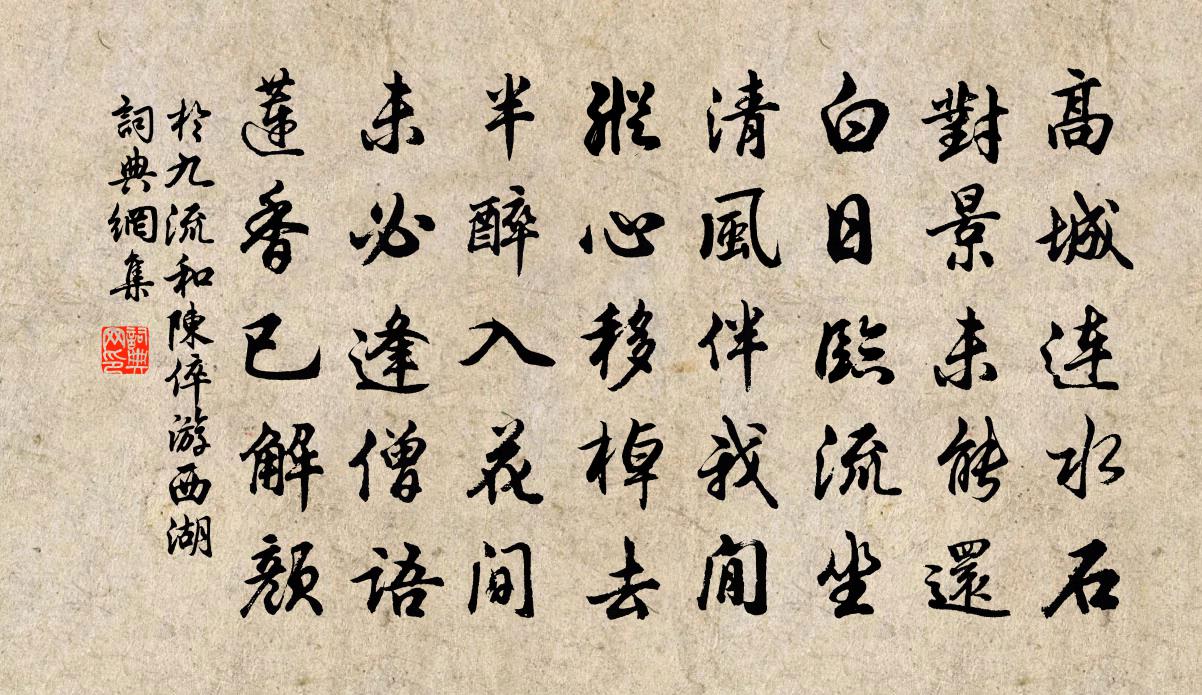 高城連水石
對景未能還
白日臨流坐
清風伴我閒
縱心移棹去
半醉入花間
未必逢僧語
蓮香已解顏
於九流和陳倅游西湖
詞典網集
詞典
网印